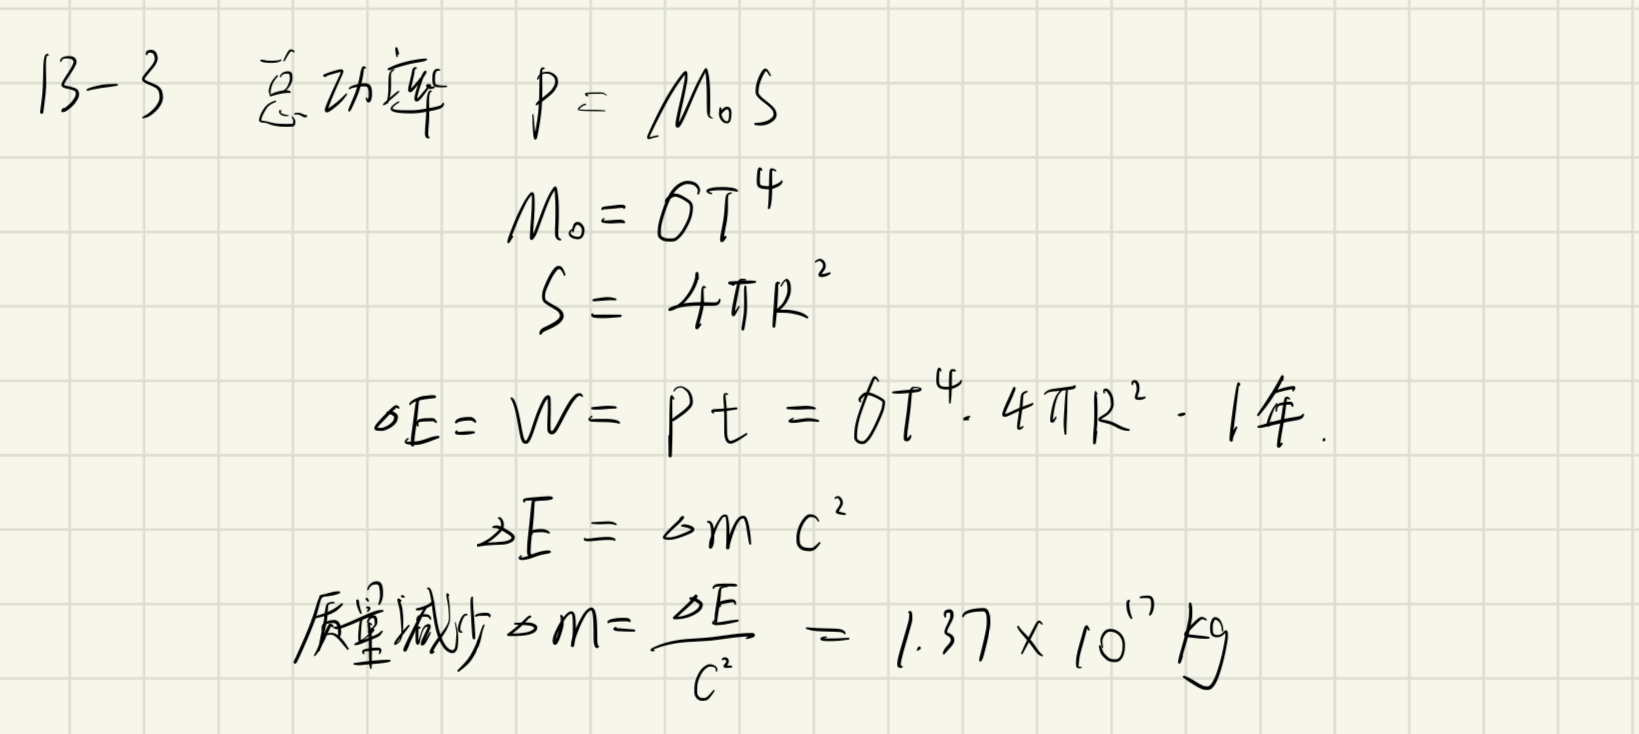 13-3 总功率 P = M₀S
M₀ = σT⁴
S = 4πR²
ΔE = W = Pt = σT⁴·4πR²·1年.
ΔE = Δm c²
质量减少 Δm = ΔE/c² = 1.37 × 10¹⁷ kg